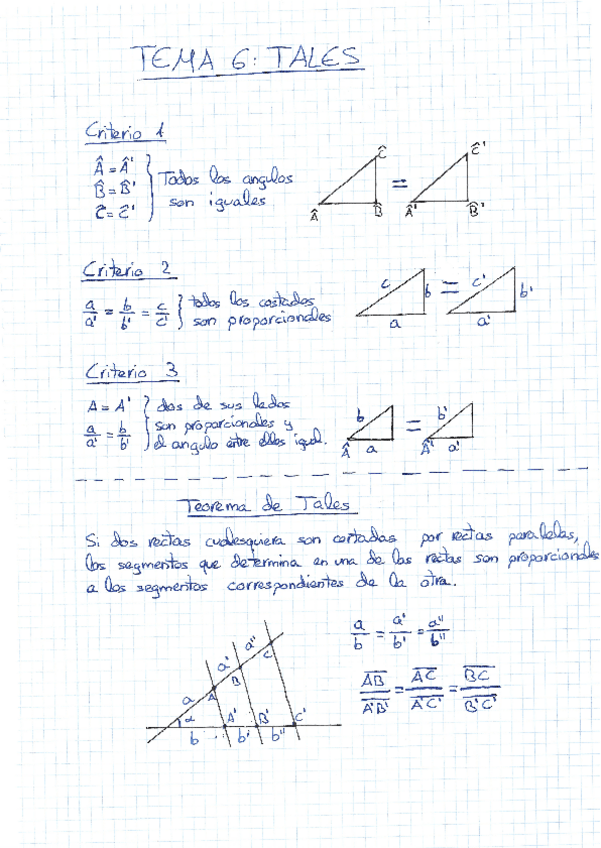 TEMA 6: TALES
Criterio 1
Â = Â'
B̂ = B̂'
Ĉ = Ĉ'
Todos los angulos
son iguales
Ĉ
Â
B̂
=
Ĉ'
Â'
B̂'
Criterio 2
a/a' = b/b' = c/c'
todos los costados
son proporcionales
c
b
a
=
c'
b'
a'
Criterio 3
A = A'
a/a' = b/b'
dos de sus lados
son proporcionales y
el angulo entre ellos igual.
b
Â
a
=
b'
Â'
a'
Teorema de Tales
Si dos rectas cualesquiera son cortadas por rectas paralelas,
los segmentos que determina en una de las rectas son proporcionales
a los segmentos correspondientes de la otra.
a
a'
a''
A
B
C
α
A'
B'
C'
b
b'
b''
a/b = a'/b' = a''/b''
AB/A'B' = AC/A'C' = BC/B'C'